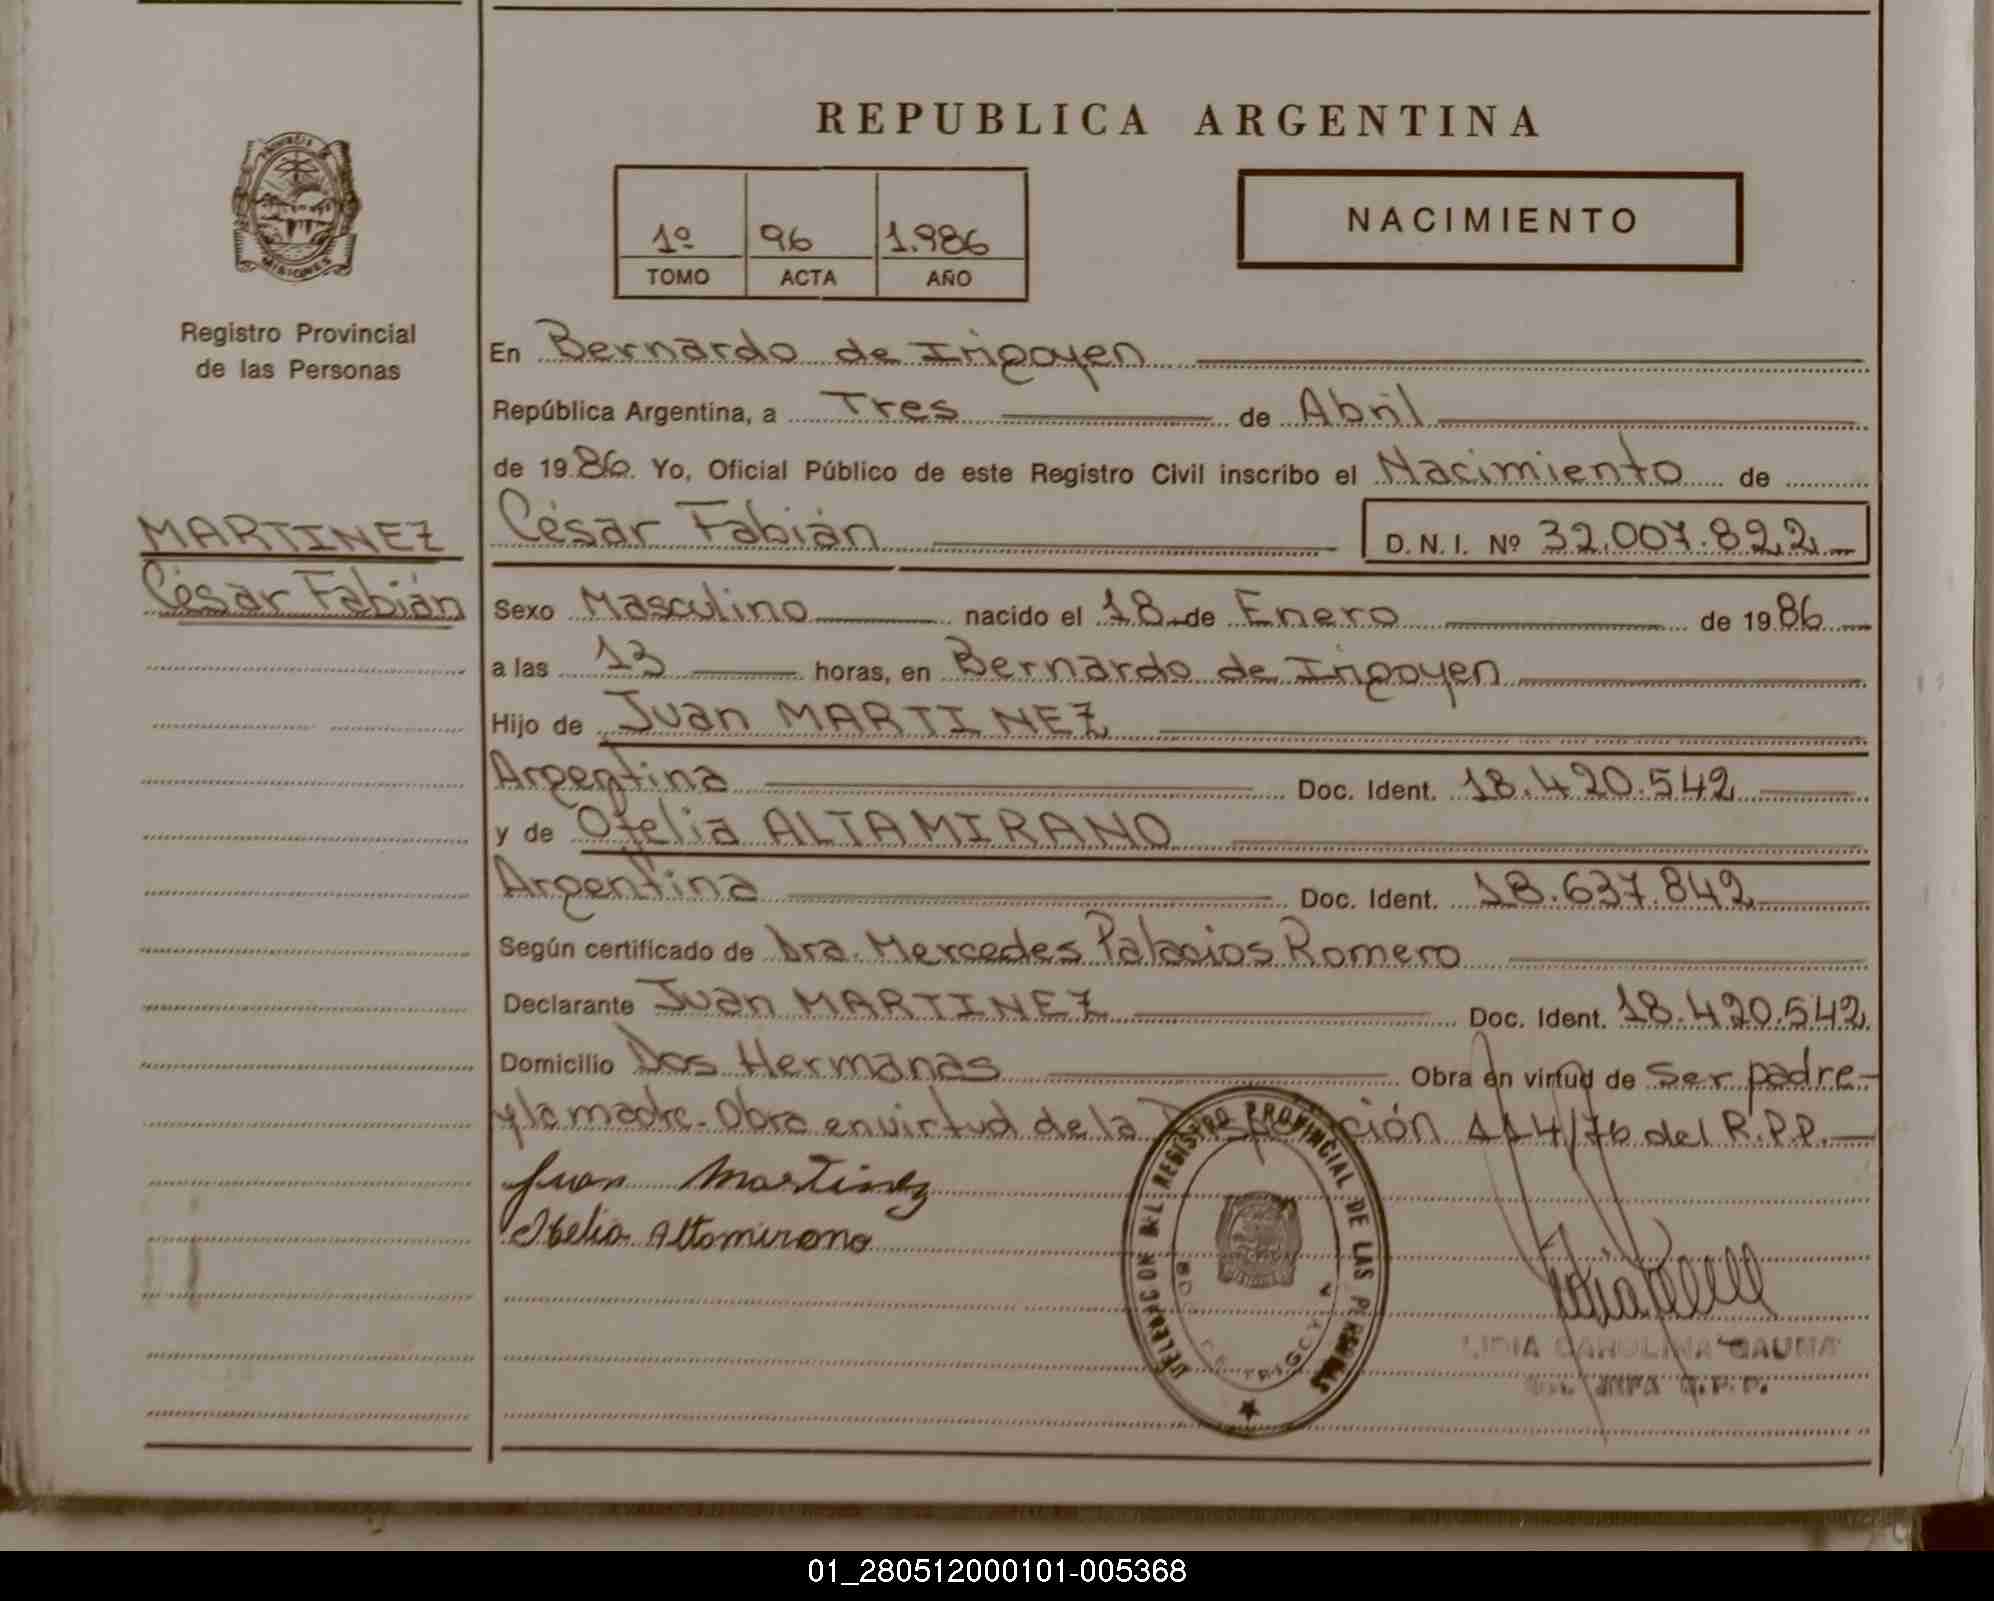 REPUBLICA ARGENTINA
PROVINCIA DE
MISIONES
Registro Provincial
de las Personas
1º 96 1.986
TOMO ACTA AÑO
NACIMIENTO
En Bernardo de Irigoyen
República Argentina, a Tres de Abril
de 1986. Yo, Oficial Público de este Registro Civil inscribo el Nacimiento de
MARTINEZ
César Fabián
César Fabián D.N.I. Nº 32.007.822
Sexo Masculino nacido el 18 de Enero de 1986
a las 13 horas, en Bernardo de Irigoyen
Hijo de Juan MARTINEZ
Argentina Doc. Ident. 18.420.542
y de Ofelia ALTAMIRANO
Argentina Doc. Ident. 18.637.842
Según certificado de Dra. Mercedes Palacios Romero
Declarante Juan MARTINEZ Doc. Ident. 18.420.542
Domicilio Dos Hermanas Obra en virtud de Ser padre
y la madre. Obra en virtud de la Disposición 114/76 del R.P.P.
Juan Martinez
Ofelia Altamirano
DELEGACION DEL REGISTRO PROVINCIAL DE LAS PERSONAS
BDO. DE IRIGOYEN
LIDIA CAROLINA GAUNA
R.P.P.
01_280512000101-005368